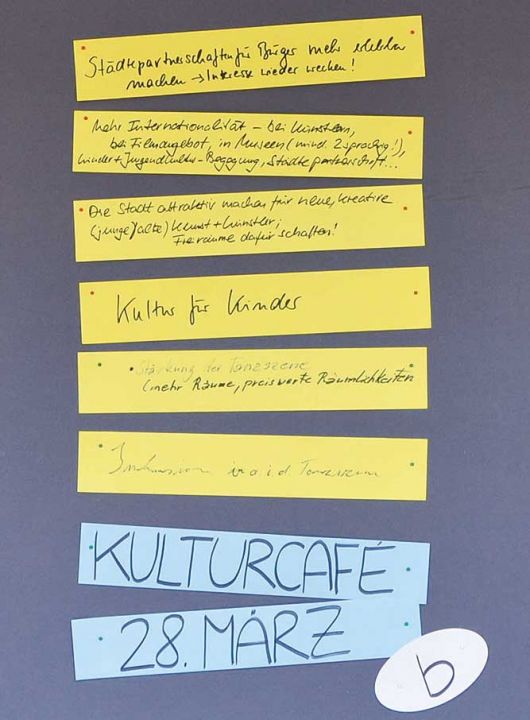 Städtepartnerschaften für Bürger mehr erlebbar
machen → Interesse wieder wecken!
Mehr Internationalität – bei Künstlern,
bei Filmangebot, in Museen (mind. 2sprachig!),
Kinder + Jugendkultur – Begegnung, Städtepartnerschaft...
Die Stadt attraktiv machen für neue, kreative
(junge/alte) Kunst + Künstler;
Freiräume dafür schaffen!
Kultur für Kinder
Stärkung der Tanzszene
(mehr Räume, preiswerte Räumlichkeiten
Inklusion i.d. Tanzszene
KULTURCAFÉ
28. MÄRZ
b